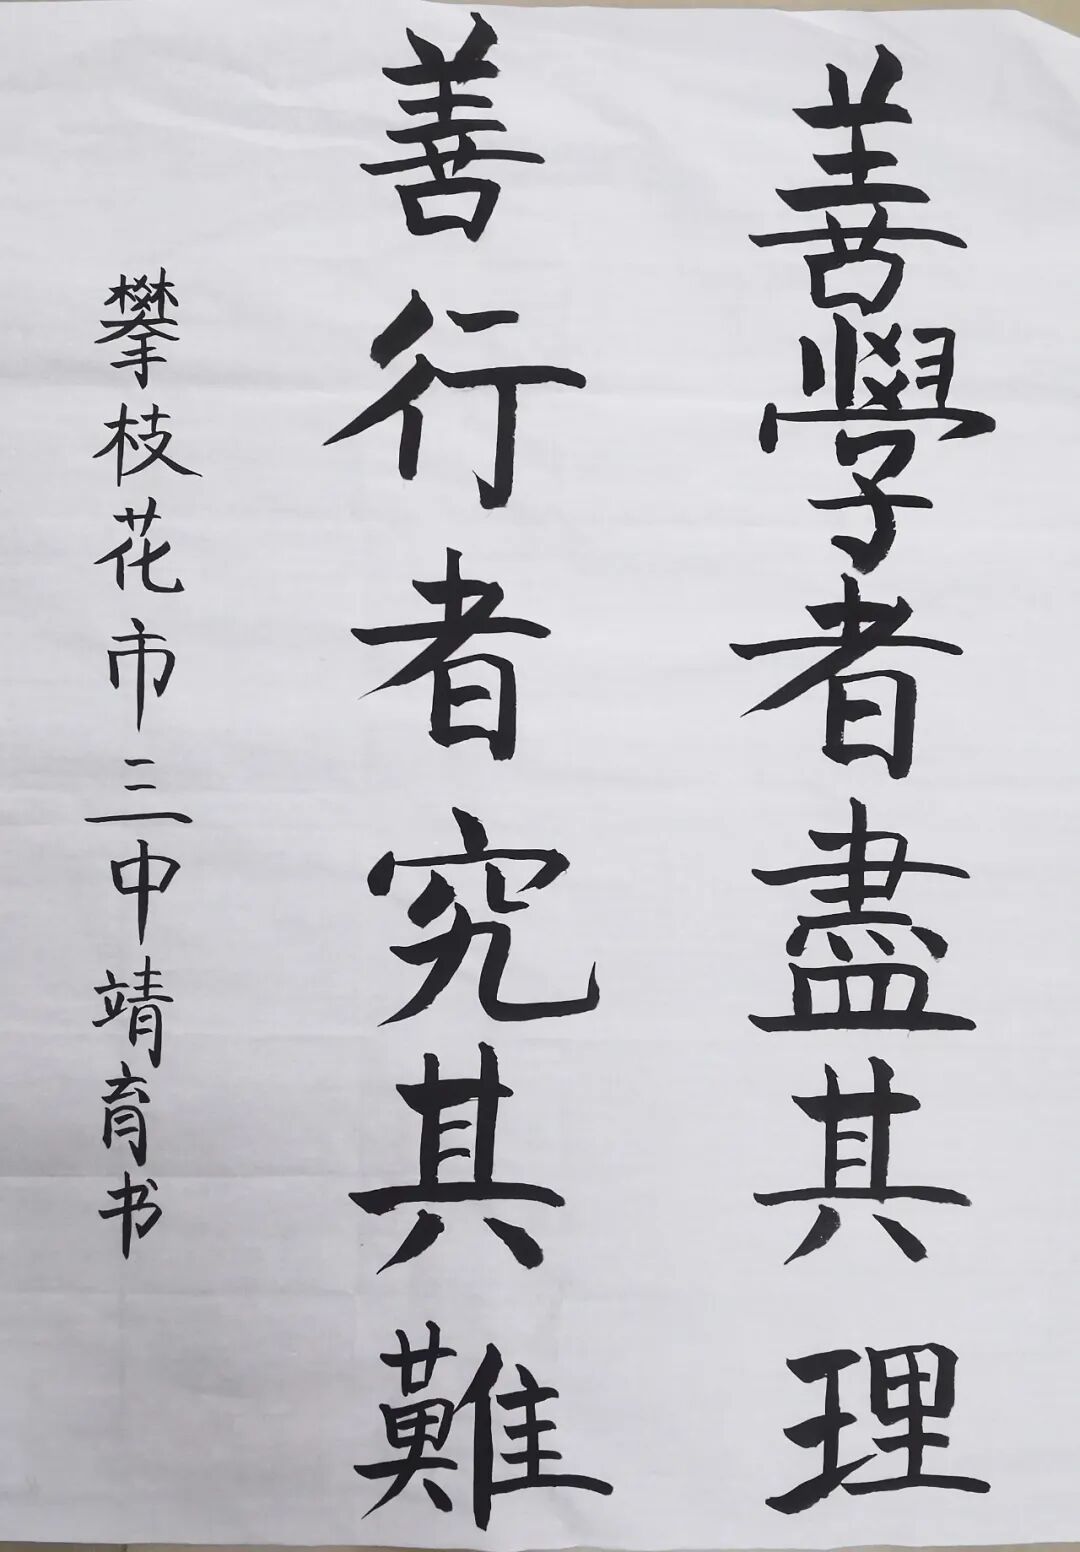 善學者盡其理
善行者究其難
攀枝花市三中靖育书